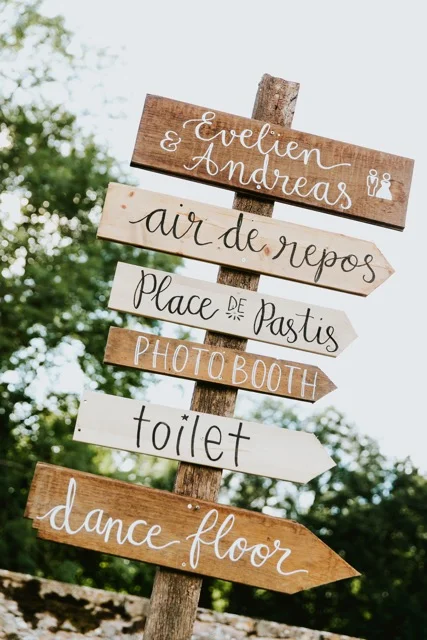 Evelien
& Andreas
air de repos
Place DE Pastis
PHOTOBOOTH
toilet
dance floor